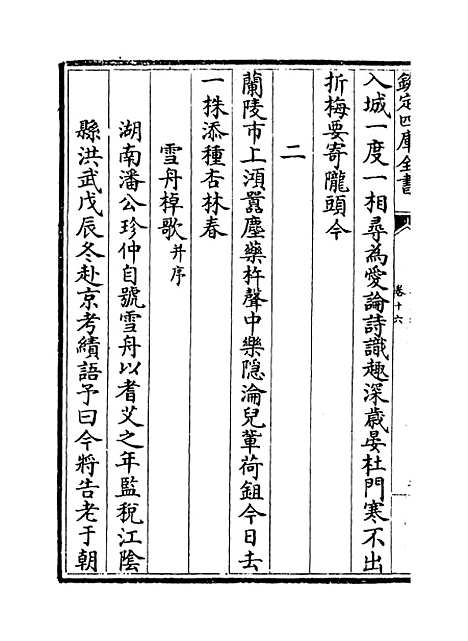 欽定四庫全書
卷十六
入城一度一相尋為愛論詩識趣深歲晏杜門寒不出
折梅要寄隴頭今
二
蘭陵市上澒囂塵藥杵聲中樂隠淪兒輩荷鉏今日去
一株添種杏林春
雪舟棹歌并序
湖南潘公珍仲自號雪舟以耆艾之年監稅江陰
縣洪武戊辰冬赴京考績語予曰今將告老于朝